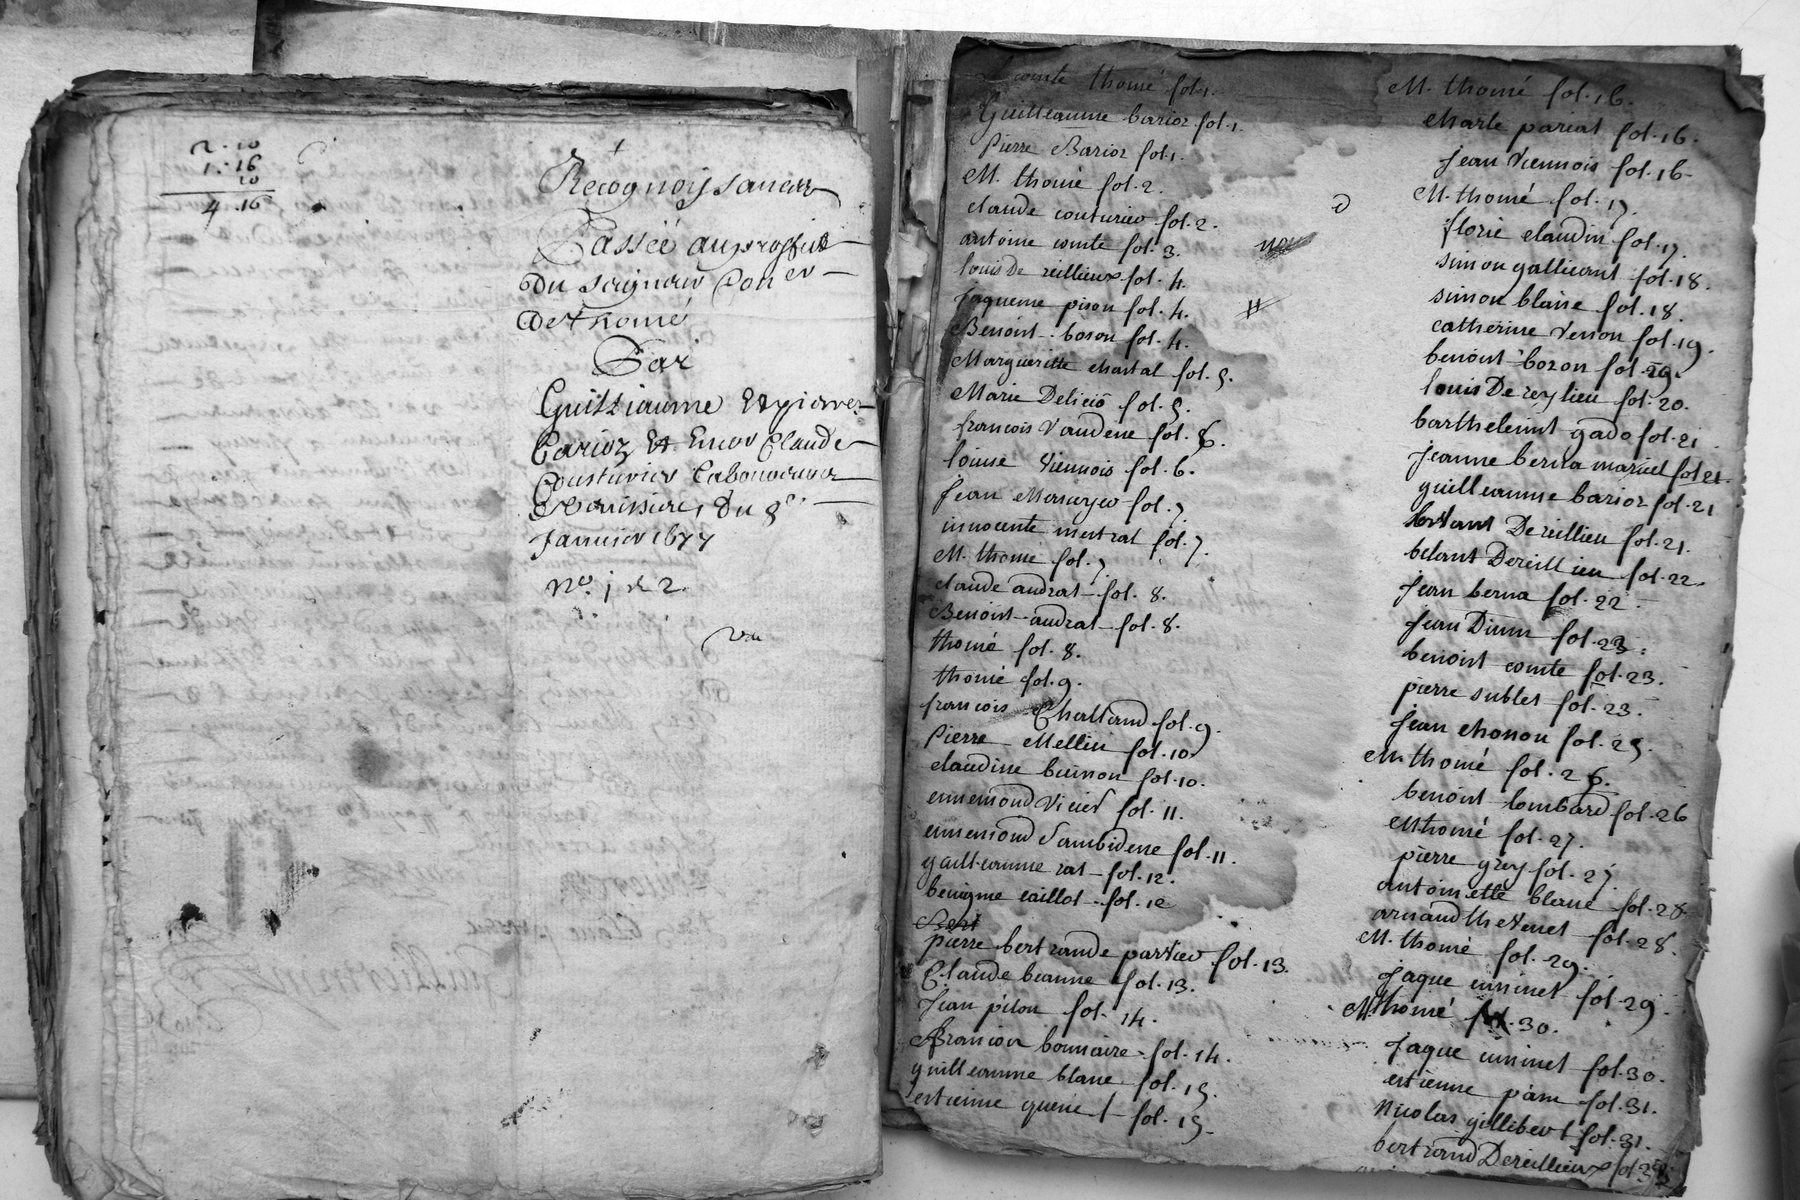 2-10
1-16
10
4-16
Recognoissances
Passée au proffit
Du Seigneur
De thomé
Par
Guilliaume Et pierre
Barioz Et Claude
Cousturier Laboureurs
Du 8e
Janvier 1677
No. 1 & 2.
comte thomé fol. 1.
Guilleaume barioz fol. 1.
Pierre Barioz fol. 1.
M. thomé fol. 2.
claude couturier fol. 2.
antoine comte fol. 3.
louis De reillieux fol. 4.
jaqueme pison fol. 4.
Benoist boson fol. 4.
Margueritte chastal fol. 5.
Marie Delicio fol. 5.
francois Vandene fol. 6.
louise Viennois fol. 6.
Jean fol. 7
innocente mistral fol. 7.
M. thome fol. 7
claude audrat fol. 8.
Benoist audrat fol. 8.
thomé fol. 8.
thomé fol. 9.
francois Challiand fol. 9
Pierre Mellin fol. 10
claudine buisson fol. 10.
ennemond Vicier fol. 11.
ennemond fol. 11.
guilleaume rat fol. 12.
benigme caillot fol. 12
Bert
pierre bertrande parvieu fol. 13.
Claude beanne fol. 13.
Jean piton fol. 14.
francois bonnaire fol. 14.
guilleaume blanc fol. 15.
estienne fol. 15
M. thomé fol. 16.
charle pariat fol. 16.
Jean Viennois fol. 16
M. thomé fol. 17.
florie claudin fol. 17.
simon fol. 18.
simon blaise fol. 18.
catherine fol. 19.
benoist bozon fol. 19.
louis De reylieu fol. 20.
barthelemit gado fol. 21
Jeanne berna fol 21.
guilleaume barioz fol. 21
Dereillieu fol. 21.
Dereillieu fol. 22.
Jean berna fol. 22
Jean fol. 23.
benoist comte fol. 23.
pierre sublet fol. 23.
Jean chonon fol. 25.
M. thomé fol. 26.
benoist lombard fol. 26
M thomé fol. 27.
pierre grey fol. 27.
antoinette blanc fol. 28.
arnaud thevenet fol. 28.
M. thomé fol. 29.
Jaque cuminet fol. 29.
M thomé fol. 30.
Jaque cuminet fol. 30.
estienne fol. 31.
nicolas gillibert fol. 31.
bertrand Dereillieux fol